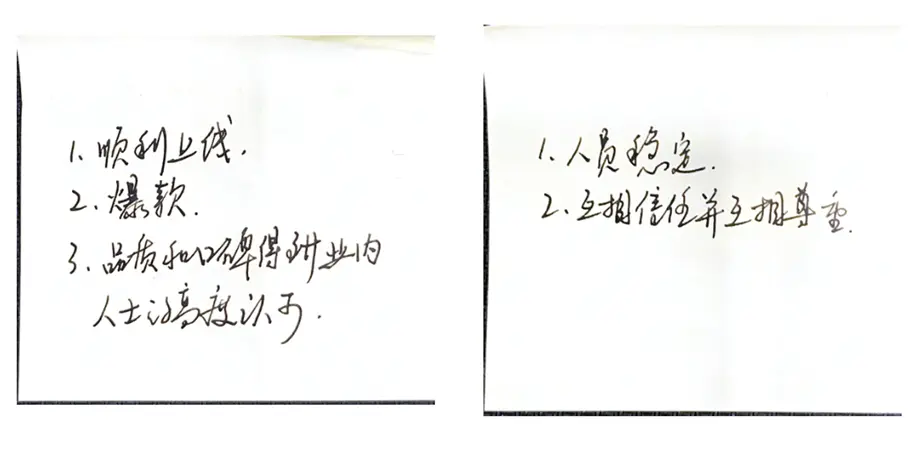 1. 顺利上线.
2. 爆款.
3. 品质和口碑得到业内
人士的高度认可.
1. 人员稳定.
2. 互相信任并互相尊重.